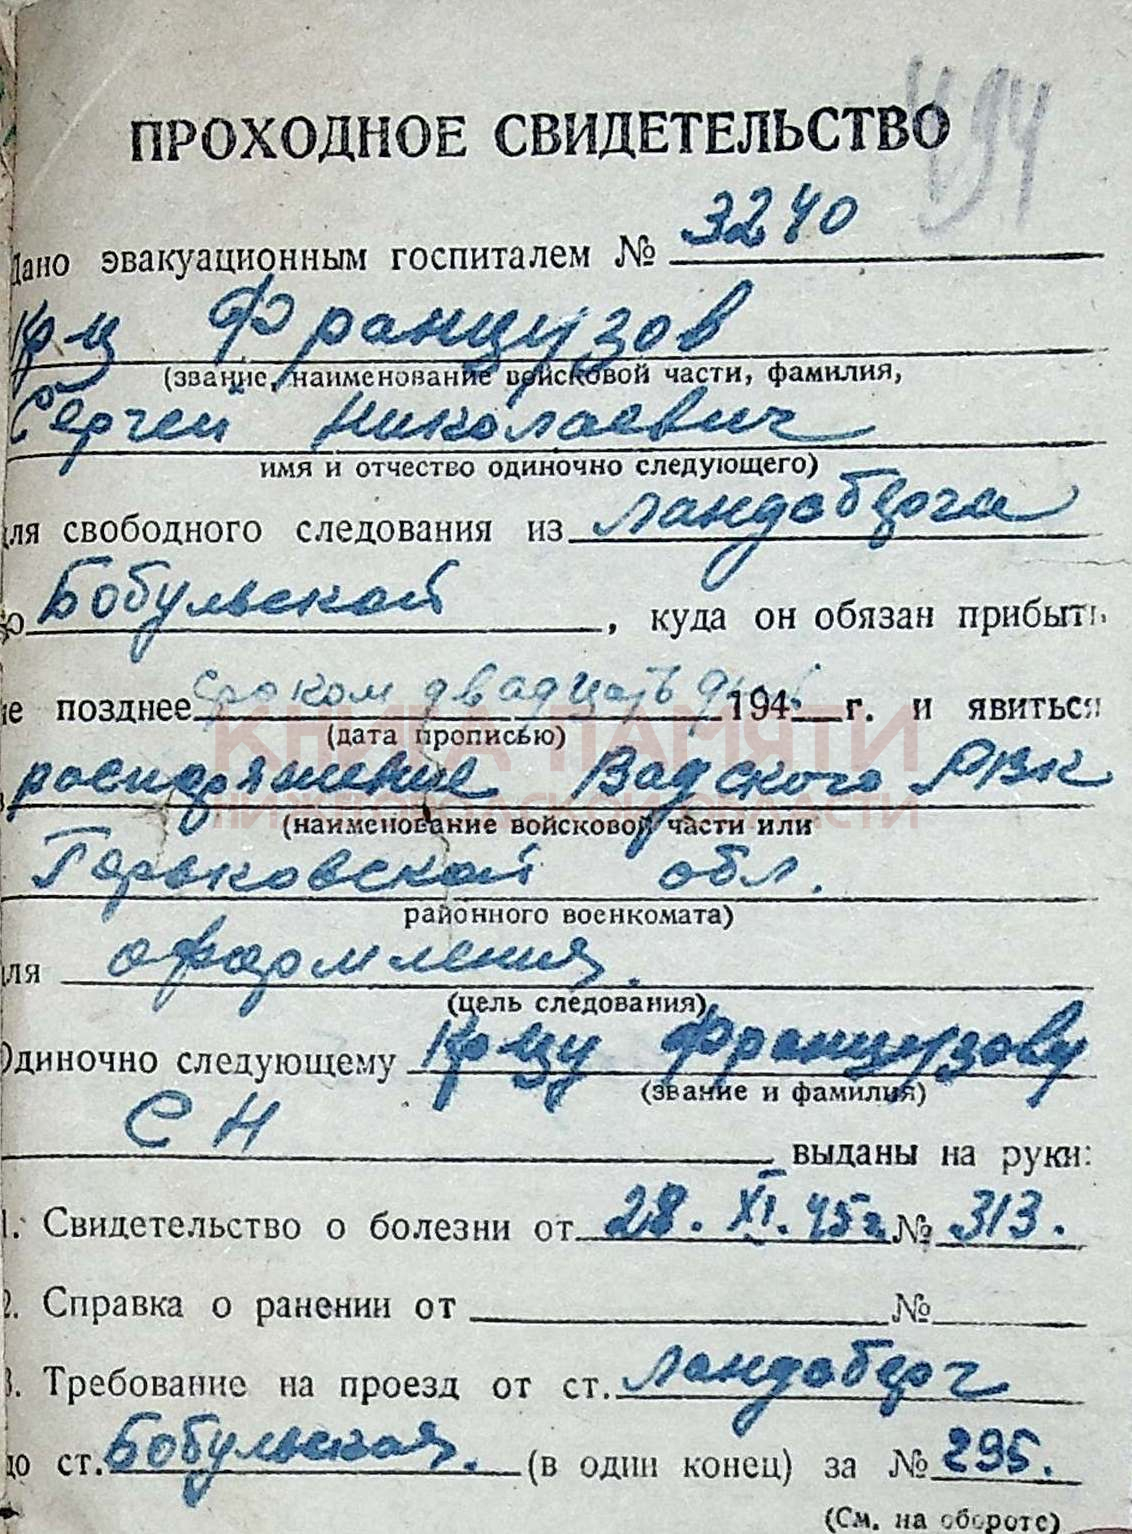 494
ПРОХОДНОЕ СВИДЕТЕЛЬСТВО
Дано эвакуационным госпиталем № 3240
Кр-ц Французов
(звание, наименование войсковой части, фамилия,
Сергей Николаевич
имя и отчество одиночно следующего)
для свободного следования из Ландсберга
до Бобульской, куда он обязан прибыть
не позднее сроком двадцать дней 194 г. и явиться
КНИГА ПАМЯТИ
(дата прописью)
в распоряжение Вадского РВК
НИЖЕГОРОДСКОЙ ОБЛАСТИ
(наименование войсковой части или
Горьковской обл.
районного военкомата)
для оформления.
(цель следования)
Одиночно следующему Кр-цу Французову
(звание и фамилия)
С Н
выданы на руки:
1. Свидетельство о болезни от 28. XI. 45 г. № 313.
2. Справка о ранении от №
3. Требование на проезд от ст. Ландсберг
до ст. Бобульская. (в один конец) за № 295.
(См. на обороте)